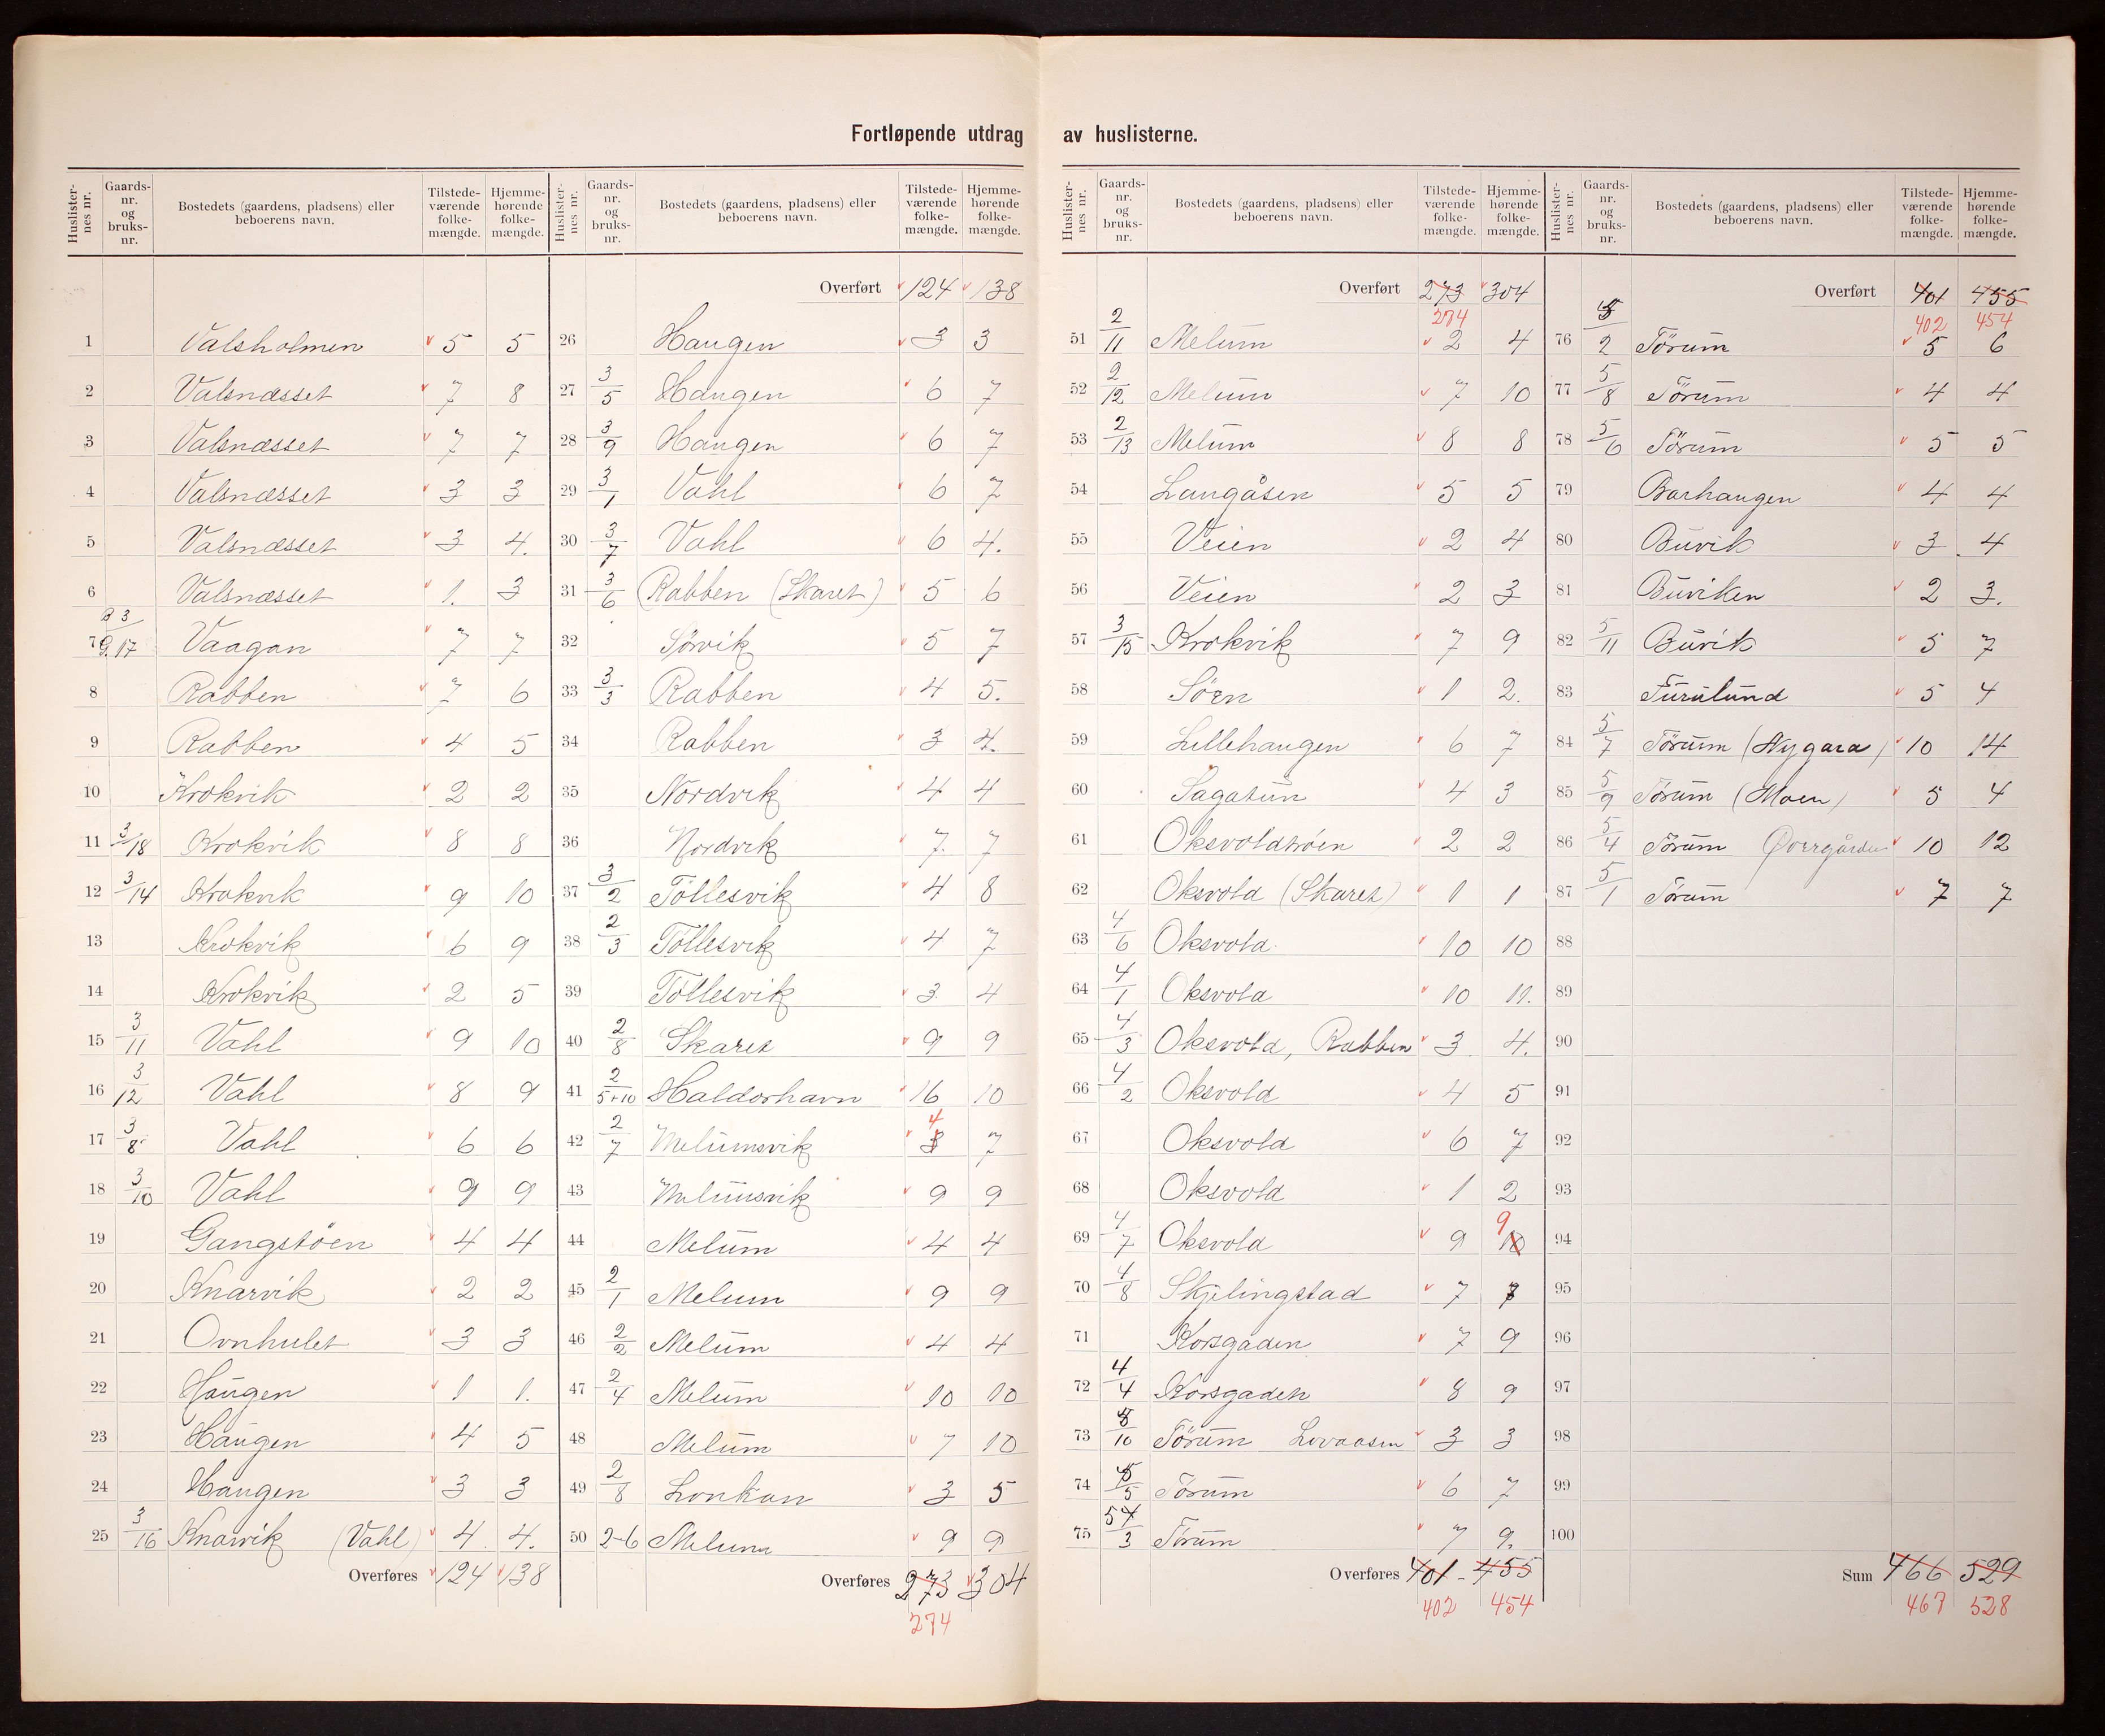 Fortløpende utdrag av huslisterne.
Huslisternes nr. | Gaards-nr. og bruks-nr. | Bostedets (gaardens, pladsens) eller beboerens navn. | Tilstedeværende folkemængde. | Hjemmehørende folkemængde.
1 Valsholmen 5 5
2 Valsnæsset 7 8
3 Valsnæsset 7 7
4 Valsnæsset 3 3
5 Valsnæsset 3 4.
6 Valsnæsset 1. 3
7 Vaagan 7 7
8 Rabben 7 6
9 Rabben 4 5
10 Krokvik 2 2
11 3/18 Krokvik 8 8
12 3/14 Krokvik 9 10
13 Krokvik 6 9
14 Krokvik 2 5
15 3/11 Vahl 9 10
16 3/12 Vahl 8 9
17 3/8 Vahl 6 6
18 3/10 Vahl 9 9
19 Gangstöen 4 4
20 Knarvik 2 2
21 Ovnhulet 3 3
22 Haugen 1 1.
23 Haugen 4 5
24 Haugen 3 3
25 3/16 Knarvik (Vahl) 4 4.
Overføres 124 138
Huslisternes nr. | Gaards-nr. og bruks-nr. | Bostedets (gaardens, pladsens) eller beboerens navn. | Tilstedeværende folkemængde. | Hjemmehørende folkemængde.
Overført 124 138
26 Haugen 3 3
27 3/5 Haugen 6 7
28 3/9 Haugen 6 7
29 3/1 Vahl 6 7
30 3/7 Vahl 6 4.
31 3/6 Rabben (Skaret) 5 6
32 Sørvik 5 7
33 3/3 Rabben 4 5.
34 Rabben 3 4.
35 Nordvik 4 4
36 Nordvik 7. 7
37 3/2 Töllesvik 4 8
38 2/3 Töllesvik 4 7
39 Töllesvik 3 4
40 2/8 Skaret 9 9
41 2/5+10 Haldorhavn 16 10
42 2/7 Melumsvik 3 4 7
43 Melumsvik 9 9
44 Melum 4 4
45 2/1 Melum 9 9
46 2/2 Melum 4 4
47 2/4 Melum 10 10
48 Melum 7 10
49 2/8 Lonkan 3 5
50 2-6 Melum 9 9
Overføres 273 304
274
Huslisternes nr. | Gaards-nr. og bruks-nr. | Bostedets (gaardens, pladsens) eller beboerens navn. | Tilstedeværende folkemængde. | Hjemmehørende folkemængde.
Overført 273 304
274
51 2/11 Melum 2 4
52 2/12 Melum 7 10
53 2/13 Melum 8 8
54 Langåsen 5 5
55 Veien 2 4
56 Veien 2 3
57 3/15 Krokvik 7 9
58 Söen 1 2.
59 Lillehaugen 6 7
60 Sagatun 4 3
61 Oksvoldtröen 2 2
62 Oksvold (Skaret) 1 1
63 4/6 Oksvold 10 10
64 4/1 Oksvold 10 11.
65 4/3 Oksvold, Rabben 3 4.
66 4/2 Oksvold 4 5
67 Oksvold 6 7
68 Oksvold 1 2
69 4/7 Oksvold 9 10 9
70 4/8 Skjelingstad 7 7
71 Korsgaden 7 9
72 4/4 Korsgaden 8 9
73 5/10 Törum Lovaasen 3 3
74 5/5 Törum 6 7
75 5/3 Törum 7 9.
Overføres 401 - 455
402 454
Huslisternes nr. | Gaards-nr. og bruks-nr. | Bostedets (gaardens, pladsens) eller beboerens navn. | Tilstedeværende folkemængde. | Hjemmehørende folkemængde.
Overført 401 455
402 454
76 5/2 Törum 5 6
77 5/8 Törum 4 4
78 5/6 Törum 5 5
79 Barhaugen 4 4
80 Buvik 3 4
81 Buviken 2 3.
82 5/11 Buvik 5 7
83 Furulund 5 4
84 5/7 Törum (Nygara) 10 14
85 5/9 Törum (Moen) 5 4
86 5/4 Törum Øvergården 10 12
87 5/1 Törum 7 7
88
89
90
91
92
93
94
95
96
97
98
99
100
Sum 466 529
467 528